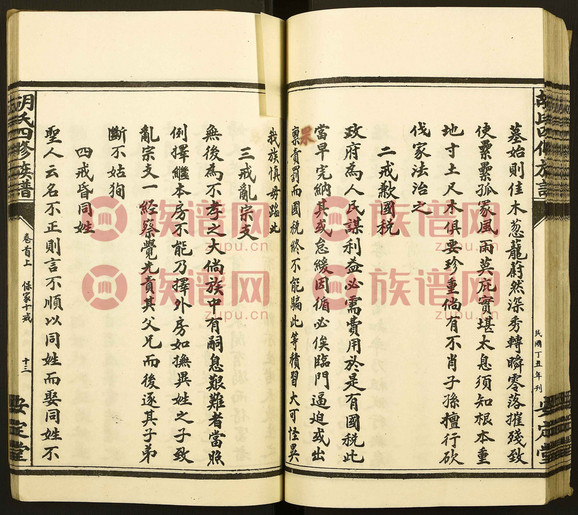 胡氏四修族譜
民國丁丑年刊
安定堂
墓始則佳木葱蘢蔚然深秀轉瞬零落摧殘致
使纍纍孤冢風雨莫庇實堪太息須知根本重
地寸土尺木俱要珍重倘有不肖子孫擅行砍
伐家法治之
二戒欺國税
政府為人民謀利益必需費用於是有國税此
當早完納其或怠緩因循必俟臨門逼迫或出
票責罰而國税終不能騙此等積習大可怪異
我族慎毋蹈此
三戒亂宗支
無後為不孝之大倘族中有嗣息艱難者當照
例擇繼本房不能乃擇外房如撫異姓之子致
亂宗支一經察覺先責其父兄而後逐其子弟
斷不姑狥
四戒昏同姓
聖人云名不正則言不順以同姓而娶同姓不
胡氏四修族譜
卷首上 保家十戒
十三
安定堂
族谱网
zupu.cn
族谱网
zupu.cn
族谱网
zupu.cn
族谱网
zupu.cn